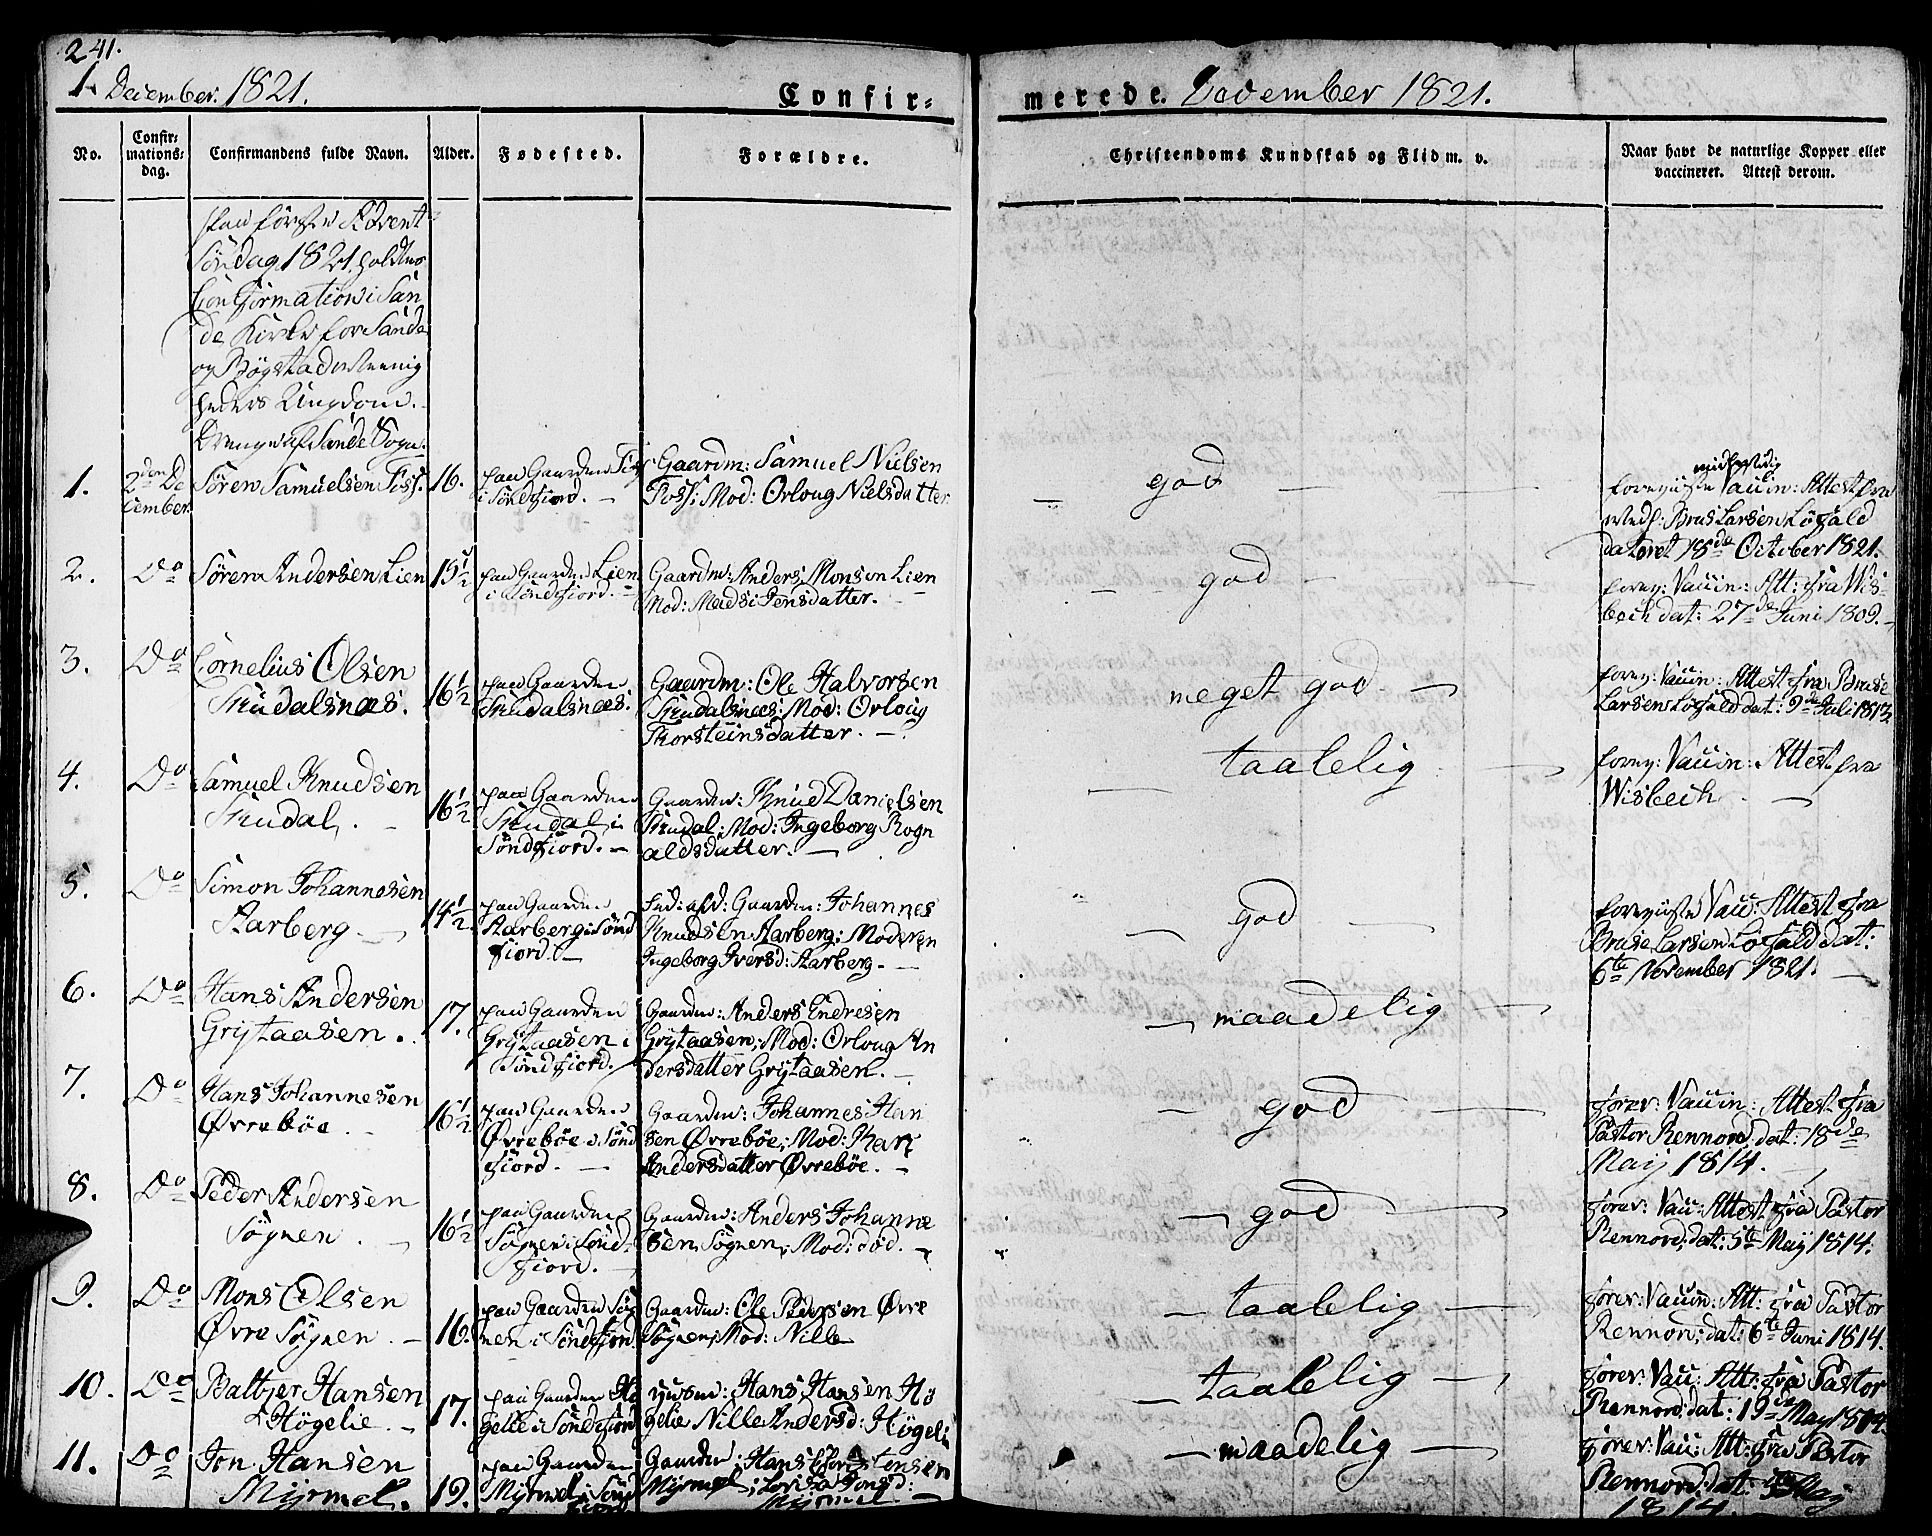 241.
1 December. 1821.
Confir=
merede. December 1821.
No.
Confir=
mations=
dag.
Confirmandens fulde Navn.
Alder.
Fødested.
Forældre.
Christendoms Kundskab og Flid m. v.
Naar havt de naturlige Kopper eller
vaccineret. Attest derom.
paa første Advent
Söndag 1821 holdtes
Confirmation i San
de Kirke for Sande
og Bøgstad
Ungdom.
Drenge af Sande Sogn.
1.
2den De
cember
Sören Samuelsen Foss.
16.
paa Gaarden
i Söndfiord.
Gaardm: Samuel Nielsen
Foss; Mod: Orloug Nielsdatter
god
Vaccin: Attest fra
Medh: Brus Larsen Löfald
dateret 18de October 1821.
2.
Do
Sören Andersen Lien
15 1/2
paa Gaarden Lien
i Söndfiord.
Gaardm: Anders Monsen Lien
Mod: Madsi Jensdatter.
god
Vaccin: Att: fra Wis-
bech dat: 27de Juni 1809.
3.
Do
Cornelius Olsen
Skudalsnæs.
16 1/2
paa Gaarden
Skudalsnæs.
Gaardm: Ole Halvorsen
Skudalsnæs; Mod: Orloug
Thorsteinsdatter.
meget god
Vaccin: Attest fra Bruse
Larsen Löfald dat: 9de Juli 1813.
4.
Do
Samuel Knudsen
Skudal.
16 1/2
paa Gaarden
Skudal i
Söndfiord.
Gaardm: Knud Danielsen
Skudal; Mod: Ingeborg Rogn
aldsdatter.
taalelig
Vaccin: Attest fra
Wisbech
5.
Do
Simon Johannesen
Aarberg
14 1/2
paa Gaarden
Aarberg i Sönd
fiord.
Gaardm: Johannes
Knudsen Aarberg; Moderen
Ingeborg Iversd: Aarberg.
god
Vacc: Attest fra
Bruse Larsen Löfald dat:
6te November 1821.
6.
Do
Hans Andersen
Grytaasen.
17.
paa Gaarden
Grytaasen i
Söndfiord.
Gaardm: Anders Endresen
Grytaasen; Mod: Orloug An
dersdatter Grytaasen.
maadelig
7.
Do
Hans Johannesen
Øvreböe
16 1/2
paa Gaarden
Øvreböe i Sönd
fiord.
Gaardm: Johannes Han
sen Øvreböe; Mod: Kari
Andersdatter Øvreböe.
god
forev: Vaccin: Attest fra
Pastor Rennord, dat: 18de
Maij 1814.
8.
Do
Peder Andersen
Sögnen
16 1/2
paa Gaarden
Sögnen i Sönd-
fiord.
Gaardm: Anders Johanne
sen Sögnen; Mod: död.
god
forev: Vacc: Attest fra Pastor
Rennord; dat: 5te Maij 1814.
9.
Do
Mons Olsen
Øvre Sögnen.
16.
paa Gaarden Sög
nen i Söndfiord
Gaardm: Ole Pedersen Øvre
Sögnen; Mod: Nille
taalelig
forev: Vaccin: Att: fra Pastor
Rennord; dat: 6te Juni 1814.
10.
Do
Balzer Hansen
Högelie
17.
paa Gaarden Hö
gelie i Söndfiord
Hans Hansen Hö
gelie Nille Andersd: Högelie
taalelig
forev: Vacc: Att: fra Pastor
Rennord; dat: 19de May 1814.
11.
Do
Jon Hansen
Myrmel.
19.
paa Gaarden
Myrmel i Sönd
fiord
Gaardm: Hans Christensen
Myrmel; Lovisa Jonsd:
Myrmel
maadelig
forev: Vacc: Att: fra Pastor
Rennord; dat: Maj
1814.